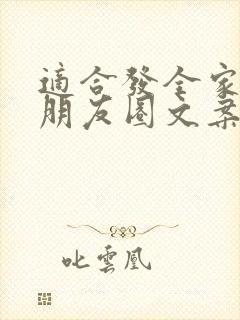 適合發全家
朋友圈文案
叱雲凰